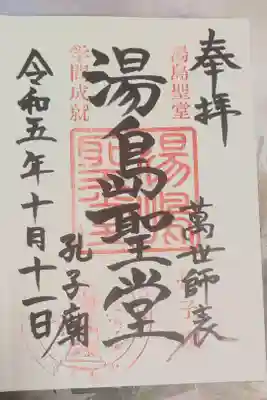 奉拝
湯島聖堂
萬世師表
湯島聖堂
孔子廟
学問成就
令和五年十月十一日